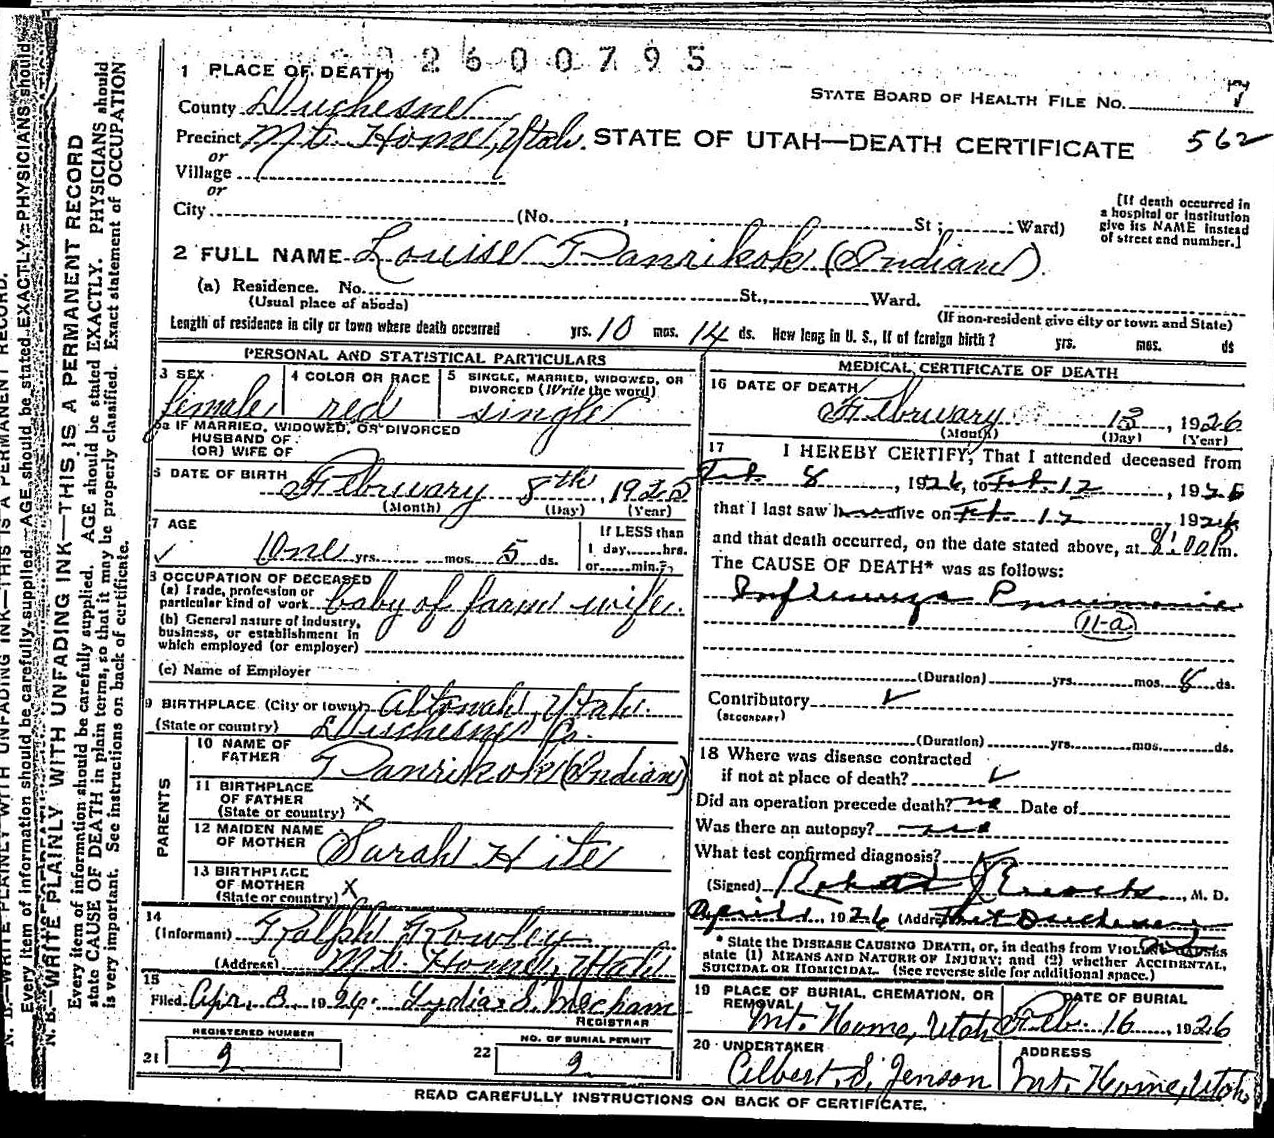 2600795
1 PLACE OF DEATH
STATE BOARD OF HEALTH FILE No. 7
County Duchesne
Precinct Mt. Home, Utah. STATE OF UTAH—DEATH CERTIFICATE 562
or
Village
or
City (No. , St ; Ward)
[If death occurred in
a hospital or institution
give its NAME instead
of street and number.]
2 FULL NAME Louise Panrikok (Indian)
(a) Residence. No. St., Ward.
(Usual place of aboda) (If non-resident give city or town and State)
Length of residence in city or town where death occurred yrs. 10 mos. 14 ds. How long in U. S., If of foreign birth? yrs. mos. ds
PERSONAL AND STATISTICAL PARTICULARS
3 SEX
female
4 COLOR OR RACE
red
5 SINGLE, MARRIED, WIDOWED, OR
DIVORCED (Write the word)
single
5a IF MARRIED, WIDOWED, OR DIVORCED
HUSBAND OF
(OR) WIFE OF
6 DATE OF BIRTH February 8th, 1925
(Month) (Day) (Year)
7 AGE
One yrs. mos. 5 ds.
If LESS than
1 day, hrs.
or min.?
8 OCCUPATION OF DECEASED
(a) Trade, profession or
particular kind of work baby of farm wife.
(b) General nature of Industry,
business, or establishment in
which employed (or employer)
(c) Name of Employer
9 BIRTHPLACE (City or town) Altonah, Utah.
(State or country) Duchesne Co.
PARENTS
10 NAME OF
FATHER Panrikok (Indian)
11 BIRTHPLACE
OF FATHER
(State or country) x
12 MAIDEN NAME
OF MOTHER Sarah Hite
13 BIRTHPLACE
OF MOTHER
(State or country) x
14
(Informant) Ralph Rowley
(Address) Mt. Home, Utah
15
Filed Apr. 3, 1926. Lydia S. Mecham
REGISTRAR
REGISTERED NUMBER
21 2
NO. OF BURIAL PERMIT
22 2
MEDICAL CERTIFICATE OF DEATH
16 DATE OF DEATH
February 13, 1926
(Month) (Day) (Year)
17 I HEREBY CERTIFY, That I attended deceased from
Feb. 8, 1926, to Feb. 12, 1926
that I last saw h alive on Feb. 12, 1926
and that death occurred, on the date stated above, at 8:00 P m.
The CAUSE OF DEATH* was as follows:
Influenza Pneumonia
11-a
(Duration) yrs. mos. 8 ds.
Contributory
(SECONDARY)
(Duration) yrs. mos. ds.
18 Where was disease contracted
if not at place of death?
Did an operation precede death? no Date of
Was there an autopsy? no
What test confirmed diagnosis?
(Signed) , M. D.
April 1, 1926 (Address) Fort Duchesne
* State the DISEASE CAUSING DEATH, or, in deaths from VIOLENT CAUSES
state (1) MEANS AND NATURE OF INJURY; and (2) whether ACCIDENTAL,
SUICIDAL OR HOMICIDAL. (See reverse side for additional space.)
19 PLACE OF BURIAL, CREMATION, OR
REMOVAL
Mt. Home, Utah
DATE OF BURIAL
Feb. 16, 1926
20 UNDERTAKER
Albert S. Jenson
ADDRESS
Mt. Home, Utah
READ CAREFULLY INSTRUCTIONS ON BACK OF CERTIFICATE.
N. B.—WRITE PLAINLY WITH UNFADING INK—THIS IS A PERMANENT RECORD
Every item of information should be carefully supplied. AGE should be stated EXACTLY. PHYSICIANS should
state CAUSE OF DEATH in plain terms, so that it may be properly classified. Exact statement of OCCUPATION
is very important. See instructions on back of certificate.
N. B.—WRITE PLAINLY WITH UNFADING INK—THIS IS A PERMANENT RECORD.
Every item of information should be carefully supplied. AGE should be stated EXACTLY. PHYSICIANS should